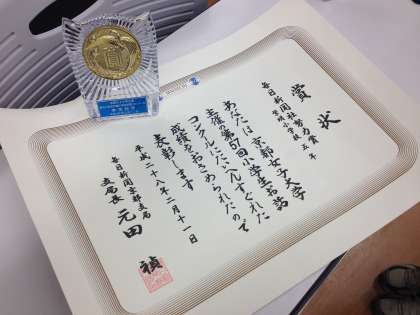 賞状
毎日新聞社努力賞
小学校五年
あなたは京都女子大学
主催の第57回小学生お話
コンクールにたいへんすぐれた
成績をおさめられたので
表彰します
平成二十八年二月十一日
毎日新聞京都支局
支局長 元田 禎